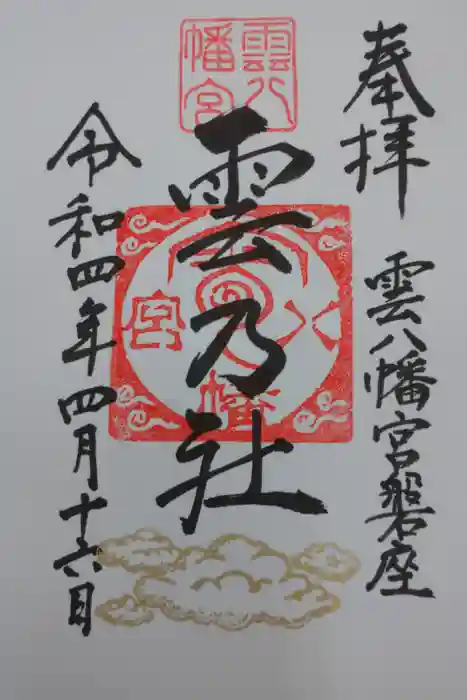 奉拝
雲八幡宮磐座
雲八
幡宮
雲乃社
八
幡
宮
令和四年四月十六日